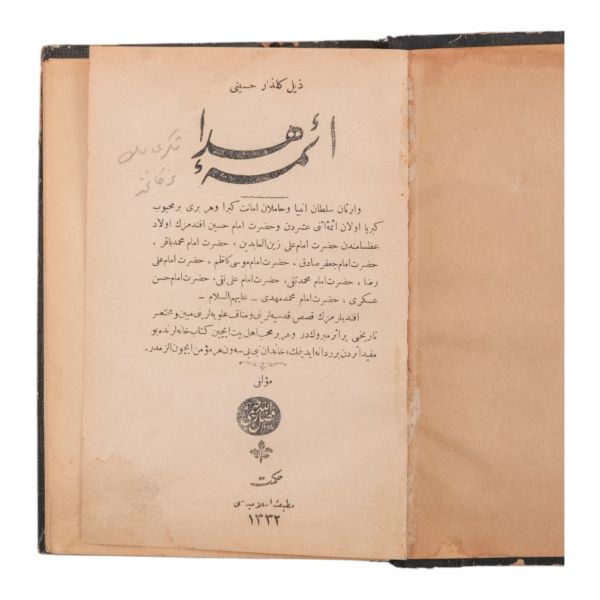 ذيل كلذار حسينى
ائمهٔ هدا
وارثان سلطان انبيا وحاملان امانت كبرا وهر برى برمحبوب
كبريا اولان ائمهٔ اثنى عشردن وحضرت امام حسين افندمزك اولاد
عظامندن حضرت امام على زين العابدين ، حضرت امام محمد باقر ،
حضرت امام جعفر صادق ، حضرت امام موسى كاظم ، حضرت امام على
رضا ، حضرت امام محمد تقى، حضرت امام على نقى، حضرت امام حسن
عسكرى ، حضرت امام محمد مهدى ـ عليهم السلام ـ
افنديلرمزك قصص قدسيه لرينى ومناقب علويه لرينى مبين ومختصر
تاريخى بر اثر مبروك در وهر بر محب اهل بيت ايچين كتابخانه لرنده بو
مفيد اثردن بر دانه ايدينمك؛ خاندان نبى يى سون هر مؤمن ايچون الزمدر.
مؤلفى
حكمت
مطبعهٔ اسلاميه سى
١٣٣٢